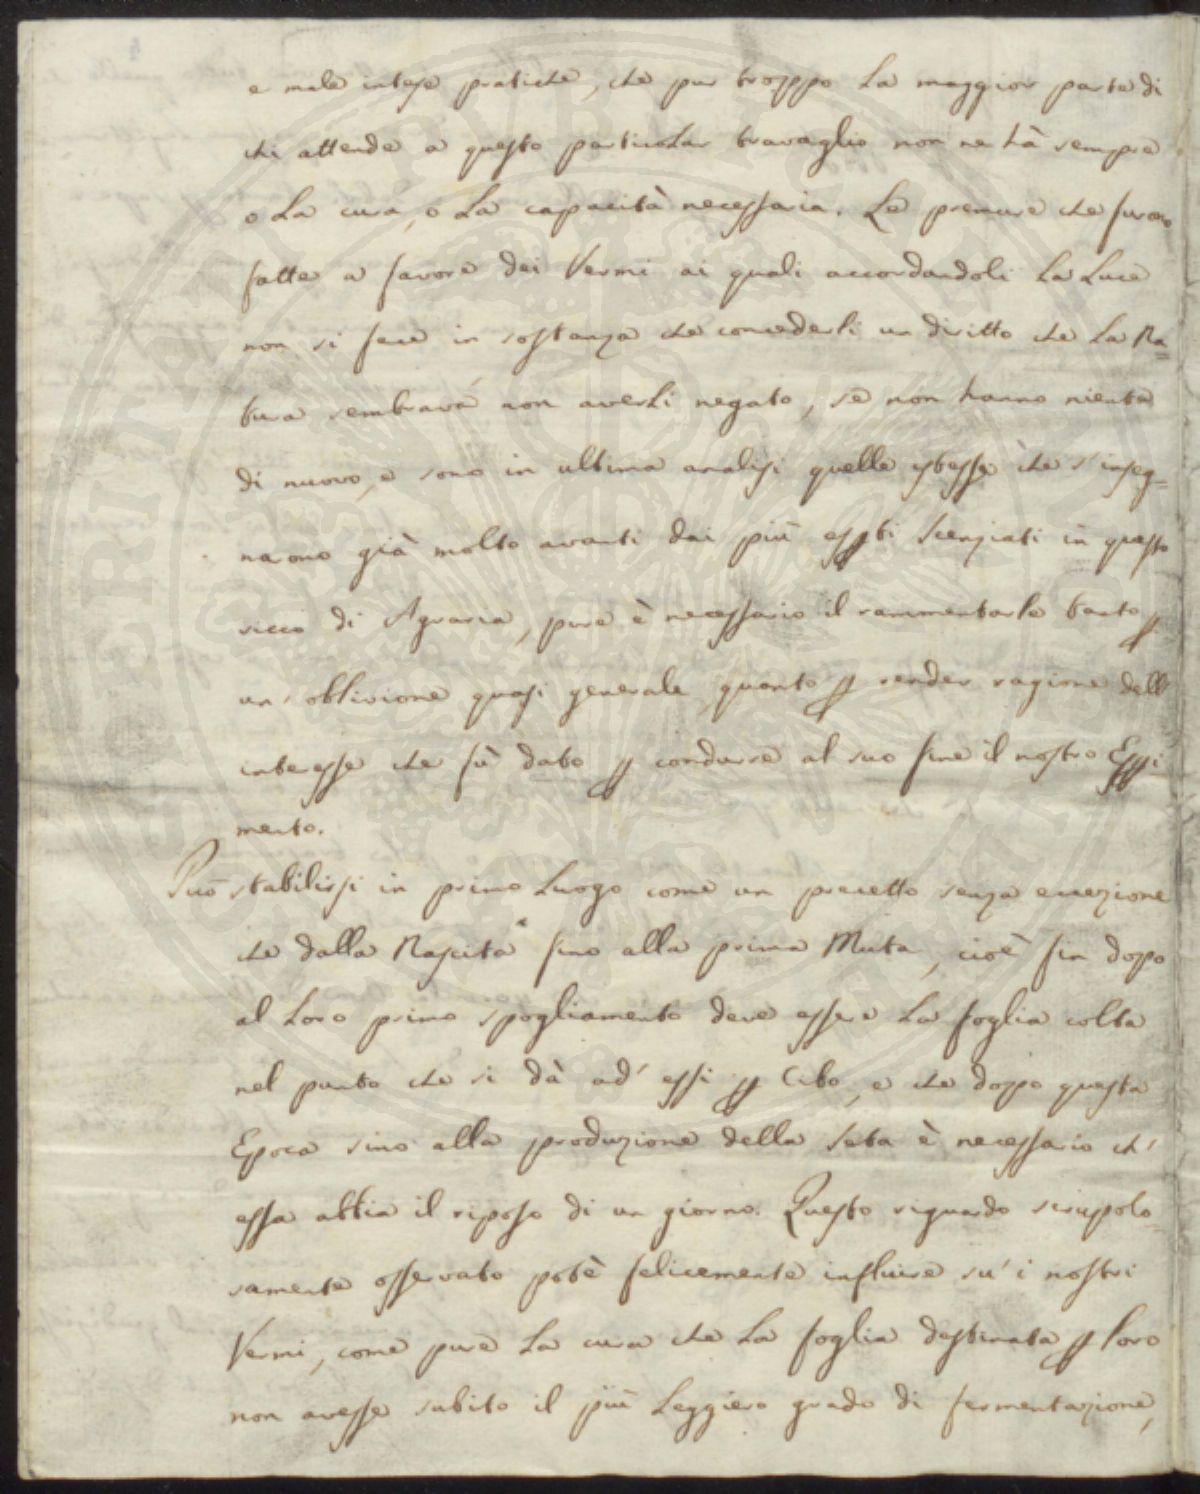 e male intese pratiche, che pur troppo la maggior parte di
chi attende a questo particolar travaglio non ne hà sempre
o la cura, o la capacità necessaria. Le premure che furono
fatte a favore dei Vermi ai quali accordandoli la Luce
non si fece in sostanza che concederli un diritto che la Na=
tura sembrava non averli negato, se non hanno niente
di nuovo, e sono in ultima analisi quelle istesse che s'inseg=
narono già molto avanti dai più esperti Scenziati in questo
ricco di Agraria, pure è necessario il rammentarle tanto per
un'oblivione quasi generale, quanto per render ragione dell'
interesse che fù dato per condurre al suo fine il nostro Esperi
mento.
Può stabilirsi in primo Luogo come un precetto senza eccezione
che dalla Nascita fino alla prima Muta, cioè fin dopo
al Loro primo spogliamento deve essere la foglia colta
nel punto che si dà ad' essi per Cibo, e che doppo questa
Epoca sino alla produzione della Seta è necessario ch'
essa abbia il riposo di un giorno. Questo riguardo scrupolo=
samente osservato potè felicemente influire su' i nostri
Vermi, come pure la cura che la foglia destinata per loro
non avesse subito il più leggiero grado di fermentazione,